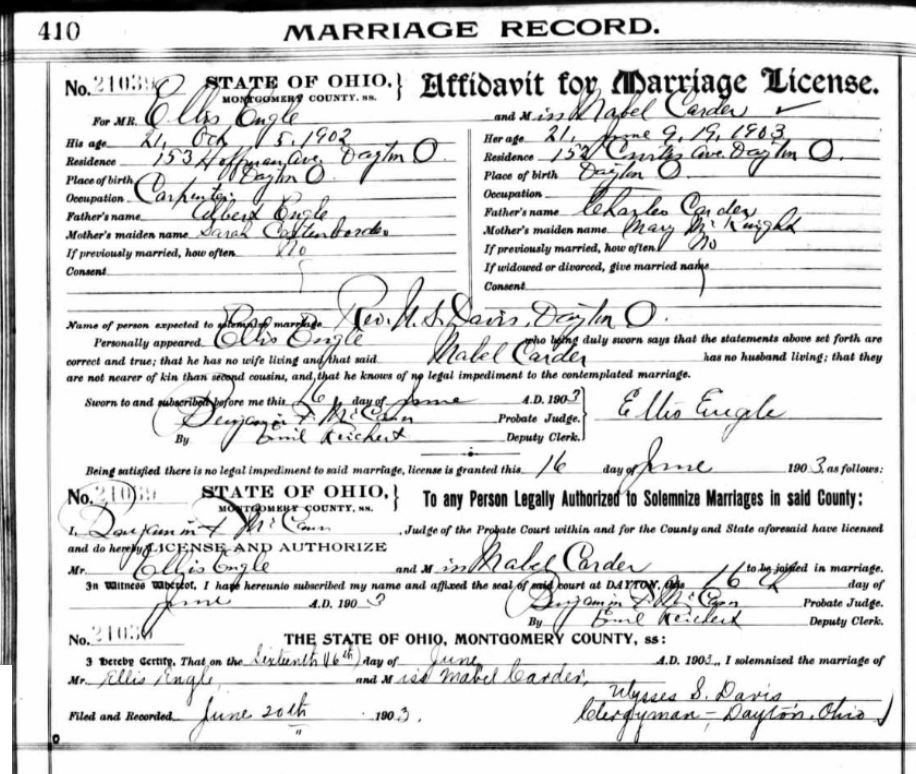 410 MARRIAGE RECORD.
No. 21039 STATE OF OHIO, } Affidavit for Marriage License.
MONTGOMERY COUNTY, ss.
For MR. Ellis Engle and Miss Mabel Carder ✓
His age 21, Oct 15, 1902 Her age 21, June 9, 19, 1903
Residence 153 Hoffman Ave. Dayton O Residence 152 Curtis Ave. Dayton O.
Place of birth Dayton O Place of birth Dayton O
Occupation Carpenter Occupation
Father's name Albert Engle Father's name Charles Carder
Mother's maiden name Sarah Mother's maiden name Mary McKnight
If previously married, how often No If previously married, how often No
Consent If widowed or divorced, give married name
Consent
Name of person expected to solemnize marriage Rev. U. S. Davis, Dayton O.
Personally appeared Ellis Engle who being duly sworn says that the statements above set forth are
correct and true; that he has no wife living and that said Mabel Carder has no husband living; that they
are not nearer of kin than second cousins, and that he knows of no legal impediment to the contemplated marriage.
Sworn to and subscribed before me this 16 day of June A.D. 1903
Benjamin F. McCann Probate Judge. Ellis Engle
By Emil Reichert Deputy Clerk.
Being satisfied there is no legal impediment to said marriage, license is granted this 16 day of June 1903, as follows:
No. 21039 STATE OF OHIO, } To any Person Legally Authorized to Solemnize Marriages in said County:
MONTGOMERY COUNTY, ss.
I, Benjamin F McCann, Judge of the Probate Court within and for the County and State aforesaid have licensed
and do hereby LICENSE AND AUTHORIZE
Mr. Ellis Engle and Miss Mabel Carder to be joined in marriage.
In Witness Whereof, I have hereunto subscribed my name and affixed the seal of said court at DAYTON, this 16th day of
June A.D. 1903 Benjamin F. McCann Probate Judge.
By Emil Reichert Deputy Clerk.
No. 21039 THE STATE OF OHIO, MONTGOMERY COUNTY, ss:
I Hereby Certify, That on the Sixteenth (16th) day of June A.D. 1903, I solemnized the marriage of
Mr. Ellis Engle and Miss Mabel Carder,
Ulysses S. Davis
Filed and Recorded June 20th 1903. Clergyman - Dayton, Ohio